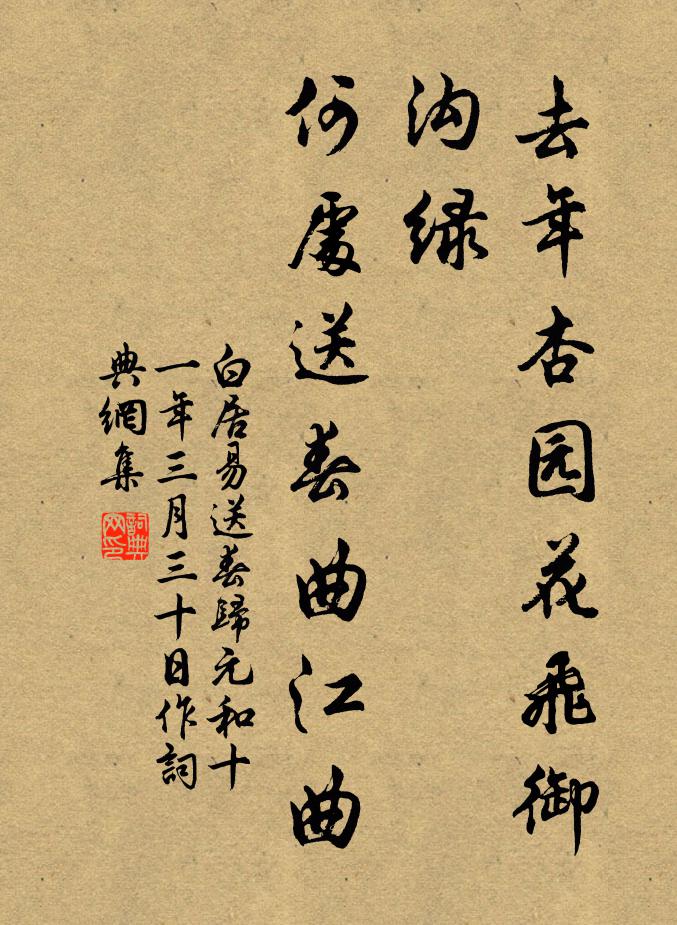 去年杏园花飛御
沟绿
何處送春曲江曲
白居易送春歸元和十
一年三月三十日作詞
典網集
詞典
网印